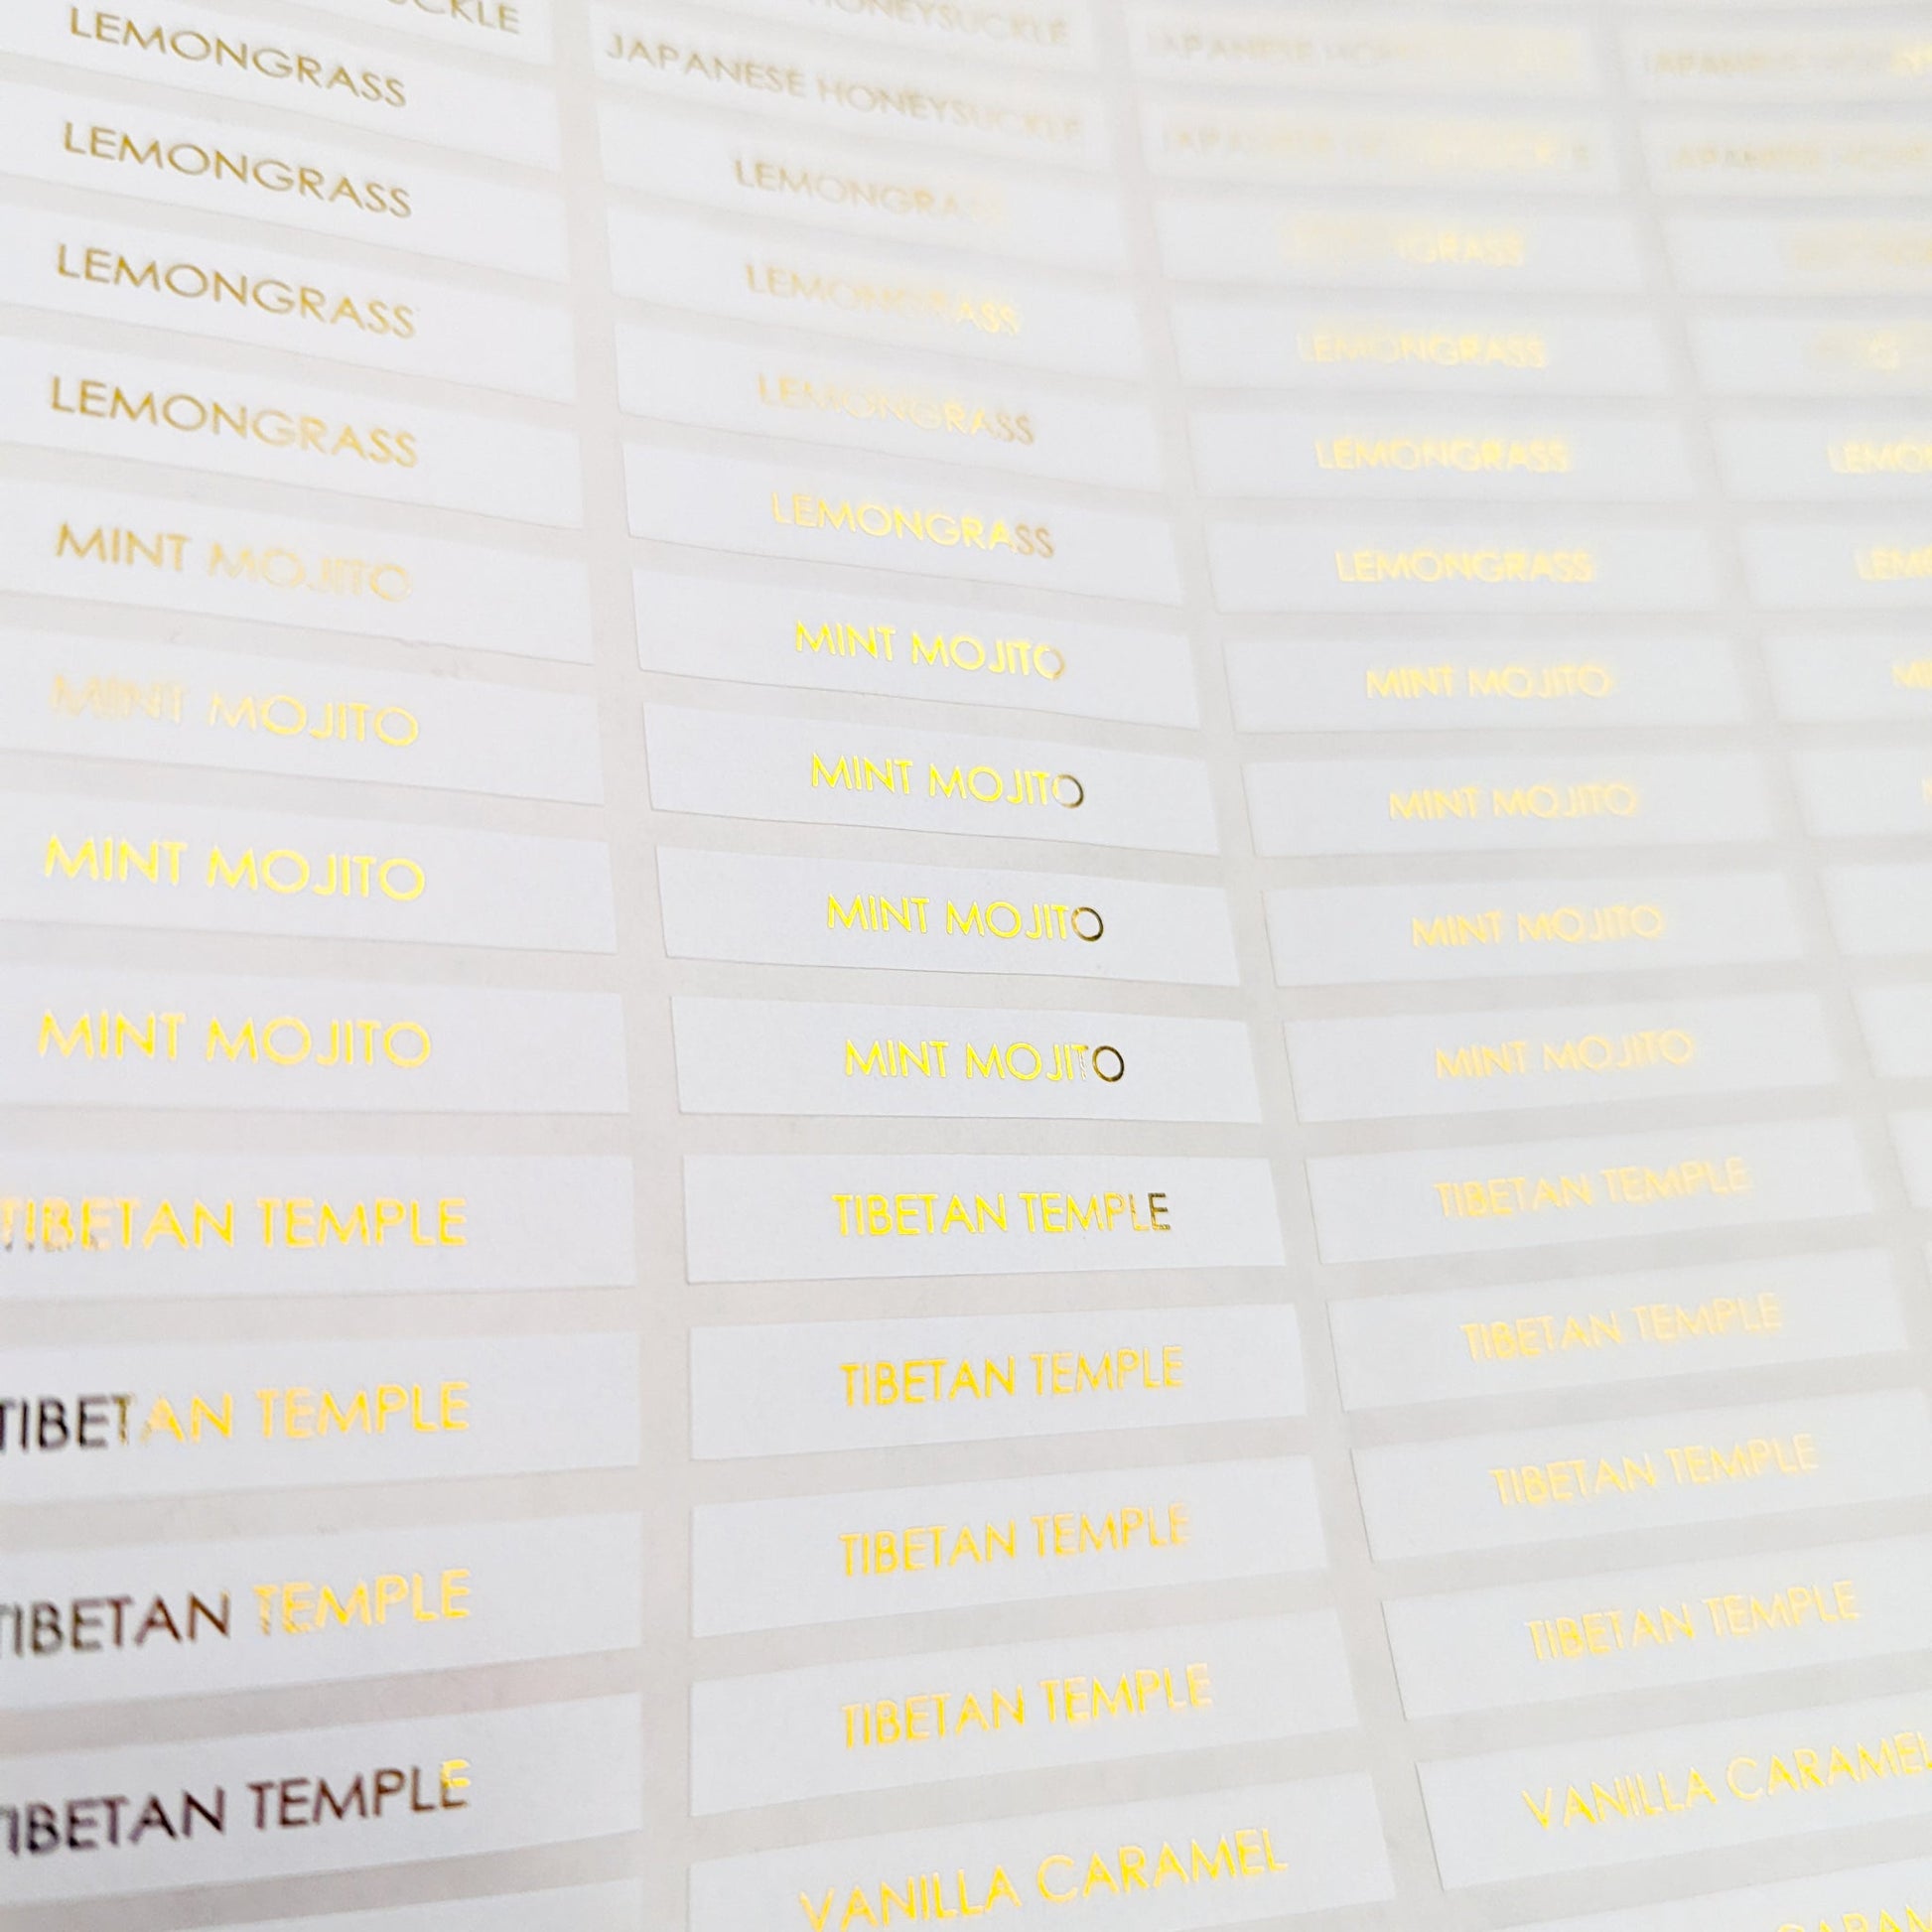 LEMONGRASS
JAPANESE HONEYSUCKLE
LEMONGRASS
LEMONGRASS
LEMONGRASS
LEMONGRASS
LEMONGRASS
LEMONGRASS
LEMONGRASS
LEMONGRASS
LEMONGRASS
LEMONGRASS
MINT MOJITO
LEMONGRASS
MINT MOJITO
MINT MOJITO
MINT MOJITO
MINT MOJITO
MINT MOJITO
MINT MOJITO
MINT MOJITO
MINT MOJITO
MINT MOJITO
MINT MOJITO
MINT MOJITO
TIBETAN TEMPLE
TIBETAN TEMPLE
TIBETAN TEMPLE
TIBETAN TEMPLE
TIBETAN TEMPLE
TIBETAN TEMPLE
TIBETAN TEMPLE
TIBETAN TEMPLE
TIBETAN TEMPLE
TEMPLE
TIBETAN TEMPLE
TIBETAN TEMPLE
VANILLA CARAMEL
VANILLA CARAMEL